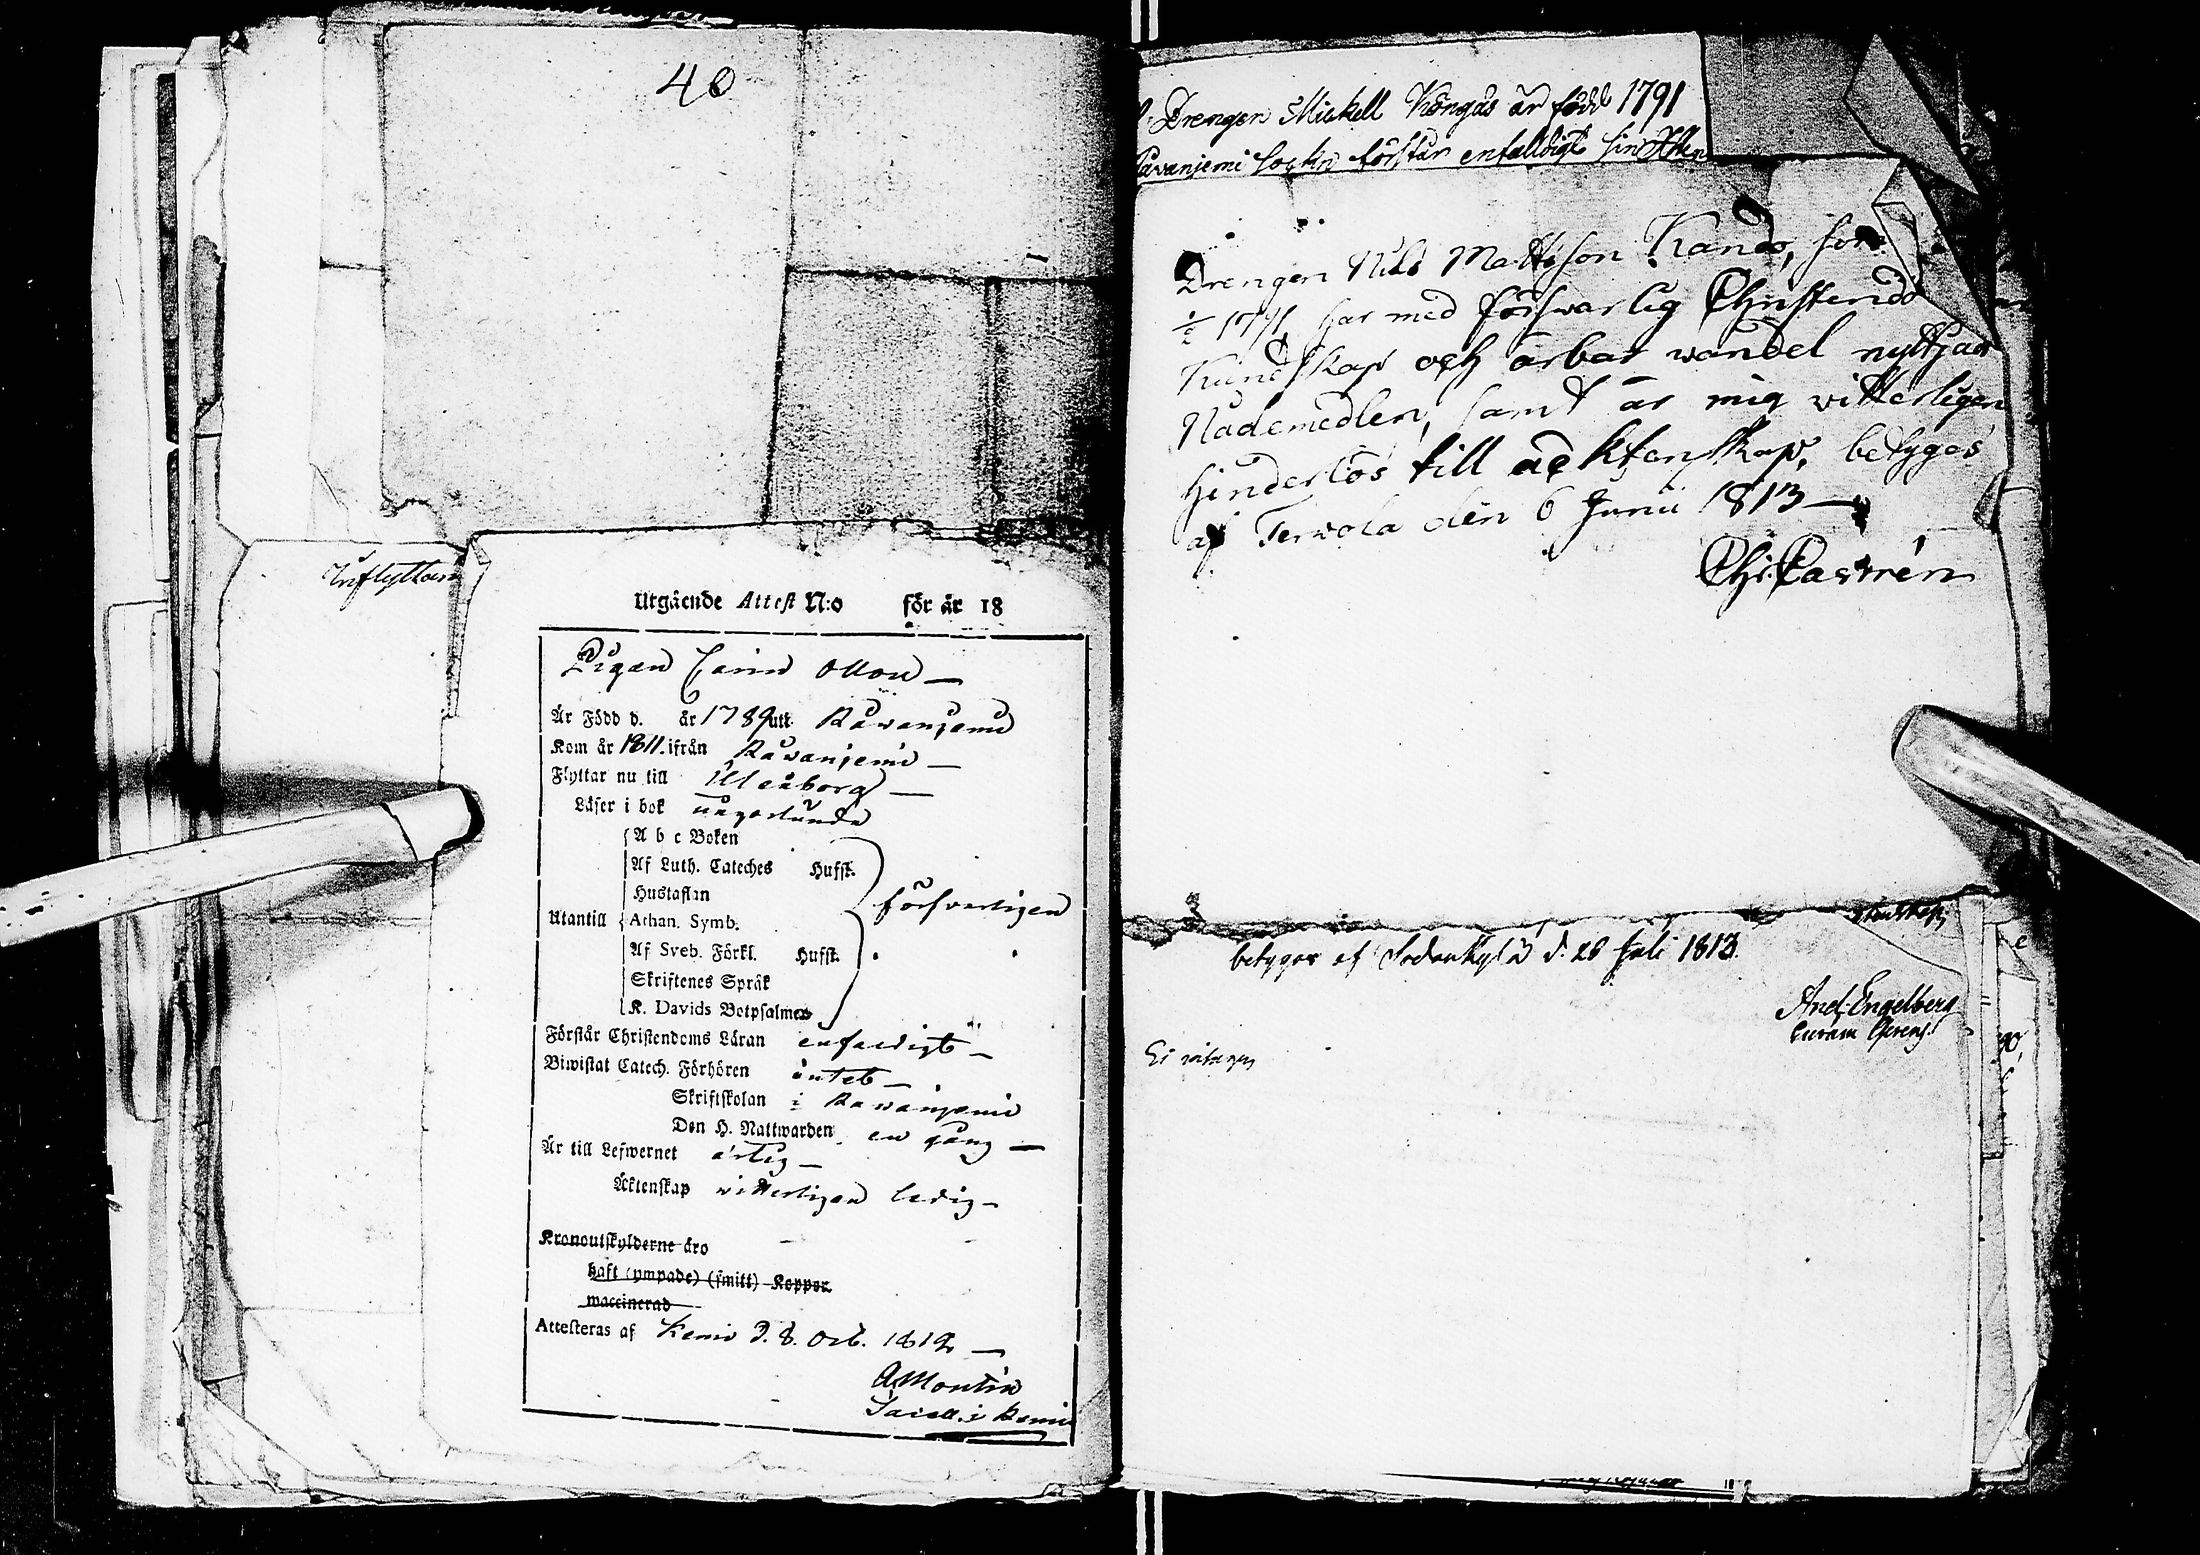 40
Inflyttan
Utgående Attest N:o för år 18
Pigan Carin Otton
Är Född d. år 1789 uti Råwanjemi
Kom år 1811. ifrån Råwanjemi
Flyttar nu till Uleåborg
Läser i bok någorlunda
A b c Boken
Af Luth. Cateches Hufst.
Hustaflan
Utantill Athan. Symb. försvarligen
Af Sveb. Förkl. Hufst.
Skriftenes Språk
K. Davids Botpsalmer
Förstår Christendoms Läran enfaldigt
Biwistat Catech. Förhören
Skriftskolan i Råwanjemi
Den H. Nattwarden en gång
Är till Lefwernet ärlig
Äktenskap witterligen ledig
Kronoutskylderne äro
haft (ympade) (smitt) Koppor
waccinerad
Attesteras af Kemi d. 8. Oct. 1812
A Montin
i Kemi
Drengen Mickell Köngäs är född 1791
Råvanjemi Sockn förstår enfalldigt sin
Drengen Nils Mattsson Kando, som
1791, har med försvarlig Christendo
Kundskap och ärbar wandel nyttjat
Nådemedlen, samt är mig vitterligen
hinderlös till äcktenskap, betygas
af Terwola den 6 Junii 1813
Ch: Castrén
betygar af Sodankylä d. 28 Juli 1813.
And: Engelberg